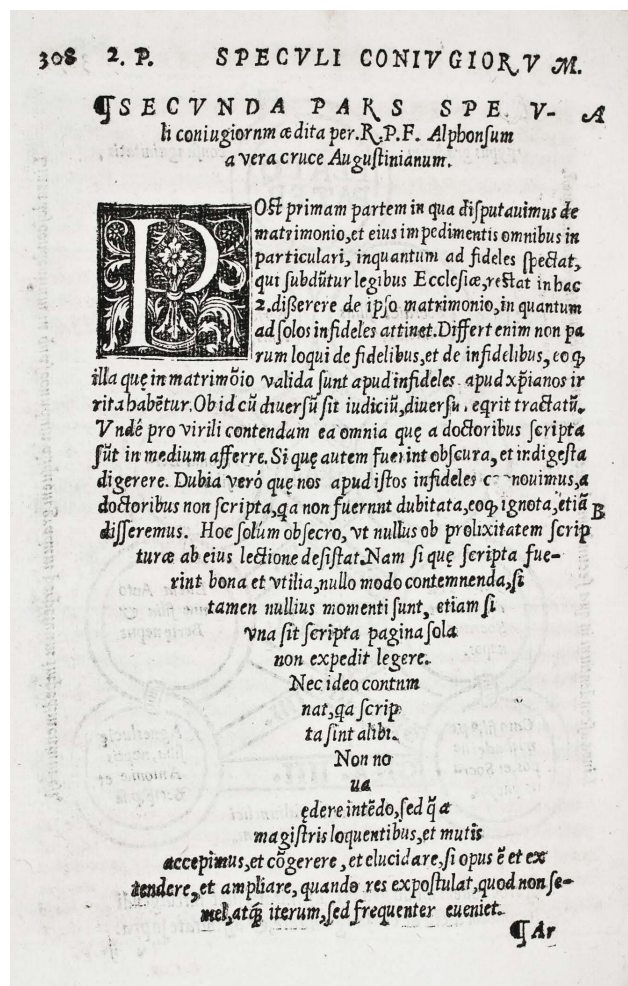 308 2. P. SPECVLI CONIVGIORV M.
¶SECVNDA PARS SPE V- A
li coniugiornm ædita per. R. P. F. Alphonſum
a vera cruce Auguſtinianum.
POſt primam partem in qua diſputauimus de
matrimonio, et eius impedimentis omnibus in
particulari, inquantum ad fideles ſpectat,
qui ſubdūtur legibus Eccleſiæ, reſtat in hac
2. diſſerere de ipſo matrimonio, in quantum
ad ſolos infideles attinet. Differt enim non pa
rum loqui de fidelibus, et de infidelibus, eoq̃
illa quę in matrimõio valida ſunt apud infideles apud xp̄ianos ir
rita habētur. Ob id cū diuerſū ſit iudiciū, diuerſū eqrit tractatū.
Vndé pro virili contendam ea omnia quę a doctoribus ſcripta
ſūt in medium afferre. Si quę autem fuerint obſcura, et indigeſta
digerere. Dubia veró quę nos apud iſtos infideles c nouimus, a
doctoribus non ſcripta, qa non fuernnt dubitata, eoq̃ ignota, etiā B
diſſeremus. Hoc ſolùm obſecro, vt nullus ob prolixitatem ſcrip
turæ ab eius lectione deſiſtat. Nam ſi quę ſcripta fue-
rint bona et vtilia, nullo modo contemnenda, ſi
tamen nullius momenti ſunt, etiam ſi
vna ſit ſcripta pagina ſola
non expedit legere.
Nec ideo contnm
nat, qa ſcrip
ta ſint alibi.
Non no
ua
ędere intēdo, ſed q̄ a
magiſtris loquentibus, et mutis
accepimus, et cõgerere, et elucidare, ſi opus ē et ex
tendere, et ampliare, quando res expoſtulat, quod non ſe-
mel, atq̃ iterum, ſed frequenter eueniet.
¶ Ar